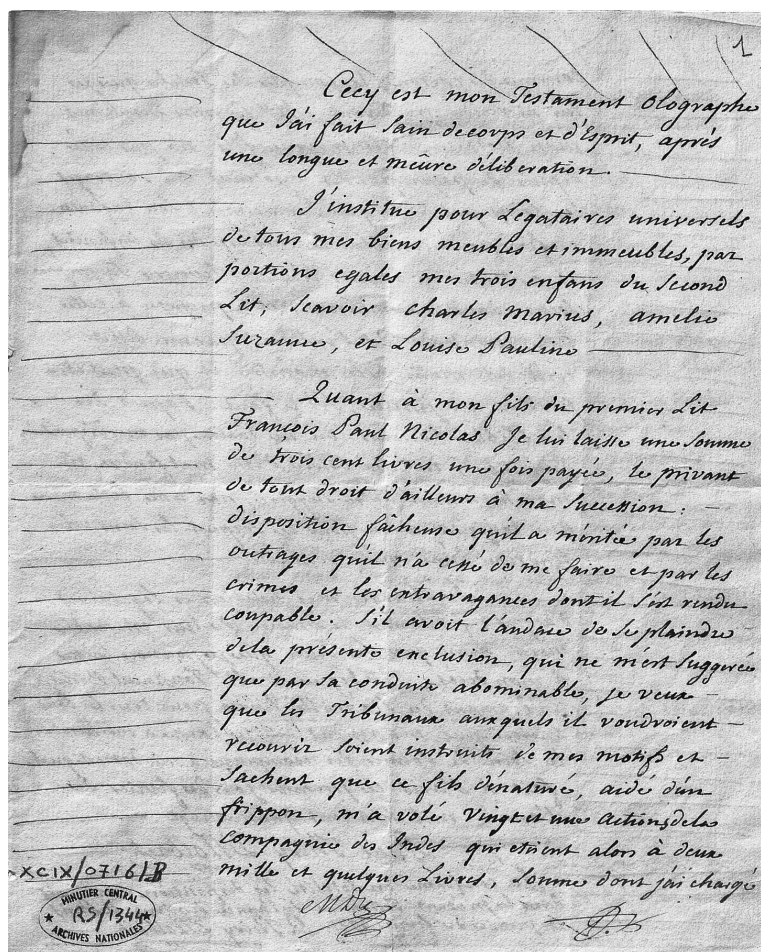 1
Cecy est mon Testament Olographe
que J'ai fait Sain de corps et d'Esprit, après
une longue et meûre déliberation.
J'institue pour Légataires universels
de tous mes biens meubles et immeubles, par
portions egales mes trois enfans du Second
Lit, Scavoir charles marius, amelie
Suzanne, et Louise Pauline
Quant à mon fils du premier Lit
François Paul Nicolas Je lui laisse une Somme
de trois cent livres une fois payée, le privant
de tout droit d'ailleurs à ma Succession :
disposition fâcheuse qu'il a méritée par les
outrages qu'il n'a cessé de me faire et par les
crimes et les extravagances dont il S'est rendu
coupable. S'il avoit l'audace de Se plaindre
dela présente exclusion, qui ne m'est Suggerée
que par Sa conduite abominable, je veux
que les Tribunaux auxquels il voudroient
recourir Soient instruits de mes motifs et
Sachent que ce fils dénaturé, aidé d'un
frippon, m'a volé vingt et une actions dela
compagnie des Indes qui etoient alors à deux
mille et quelques Livres, Somme dont j'ai chargé
XCIX/0716/B
MINUTIER CENTRAL
RS/1344
ARCHIVES NATIONALES